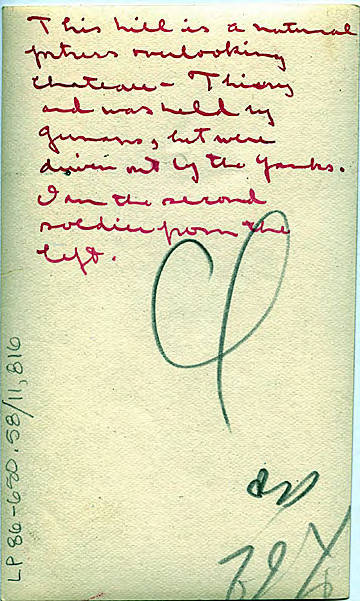 This hill is a natural
fortress overlooking
Chateau-Thierry
and was held by
Germans, but were
driven out by the Yanks.
I am the second
soldier from the
left.
LP 86-650.58/11,816